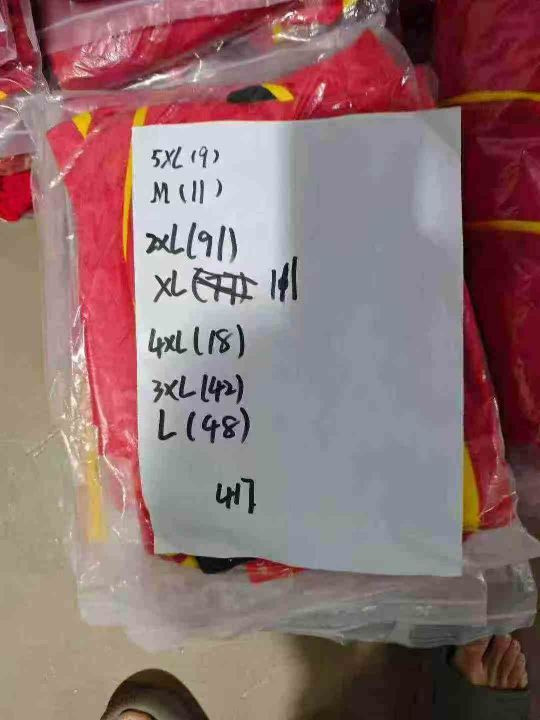 5XL(9)
M(11)
2XL(91)
XL
4XL(18)
3XL(42)
L(48)
417